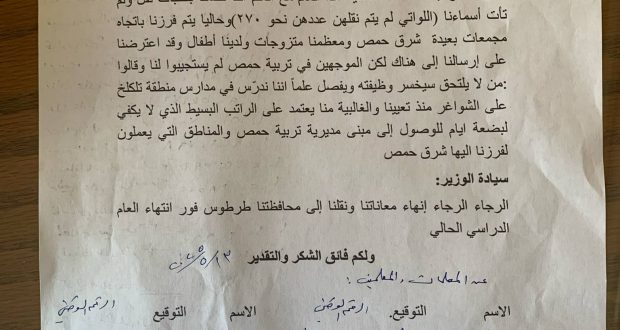 تأت أسماءنا (اللواتي لم يتم نقلهن عددهن نحو ٢٧٠) وحاليا يتم فرزنا باتجاه
مجمعات بعيدة شرق حمص ومعظمنا متزوجات ولدينا أطفال وقد اعترضنا
على إرسالنا إلى هناك لكن الموجهين في تربية حمص لم يستجيبوا لنا وقالوا
:من لا يلتحق سيخسر وظيفته ويفصل علماً اننا ندرّس في مدارس منطقة تلكلخ
على الشواغر منذ تعييننا والغالبية منا يعتمد على الراتب البسيط الذي لا يكفي
لبضعة ايام للوصول إلى مبنى مديرية تربية حمص والمناطق التي يعملون
لفرزنا اليها شرق حمص
سيادة الوزير:
الرجاء الرجاء إنهاء معاناتنا ونقلنا إلى محافظتنا طرطوس فور انتهاء العام
الدراسي الحالي
ولكم فائق الشكر والتقدير
عن المعلمات والمعلمين:
الاسم التوقيع. الرقم الوطني الاسم التوقيع الرقم الوطني